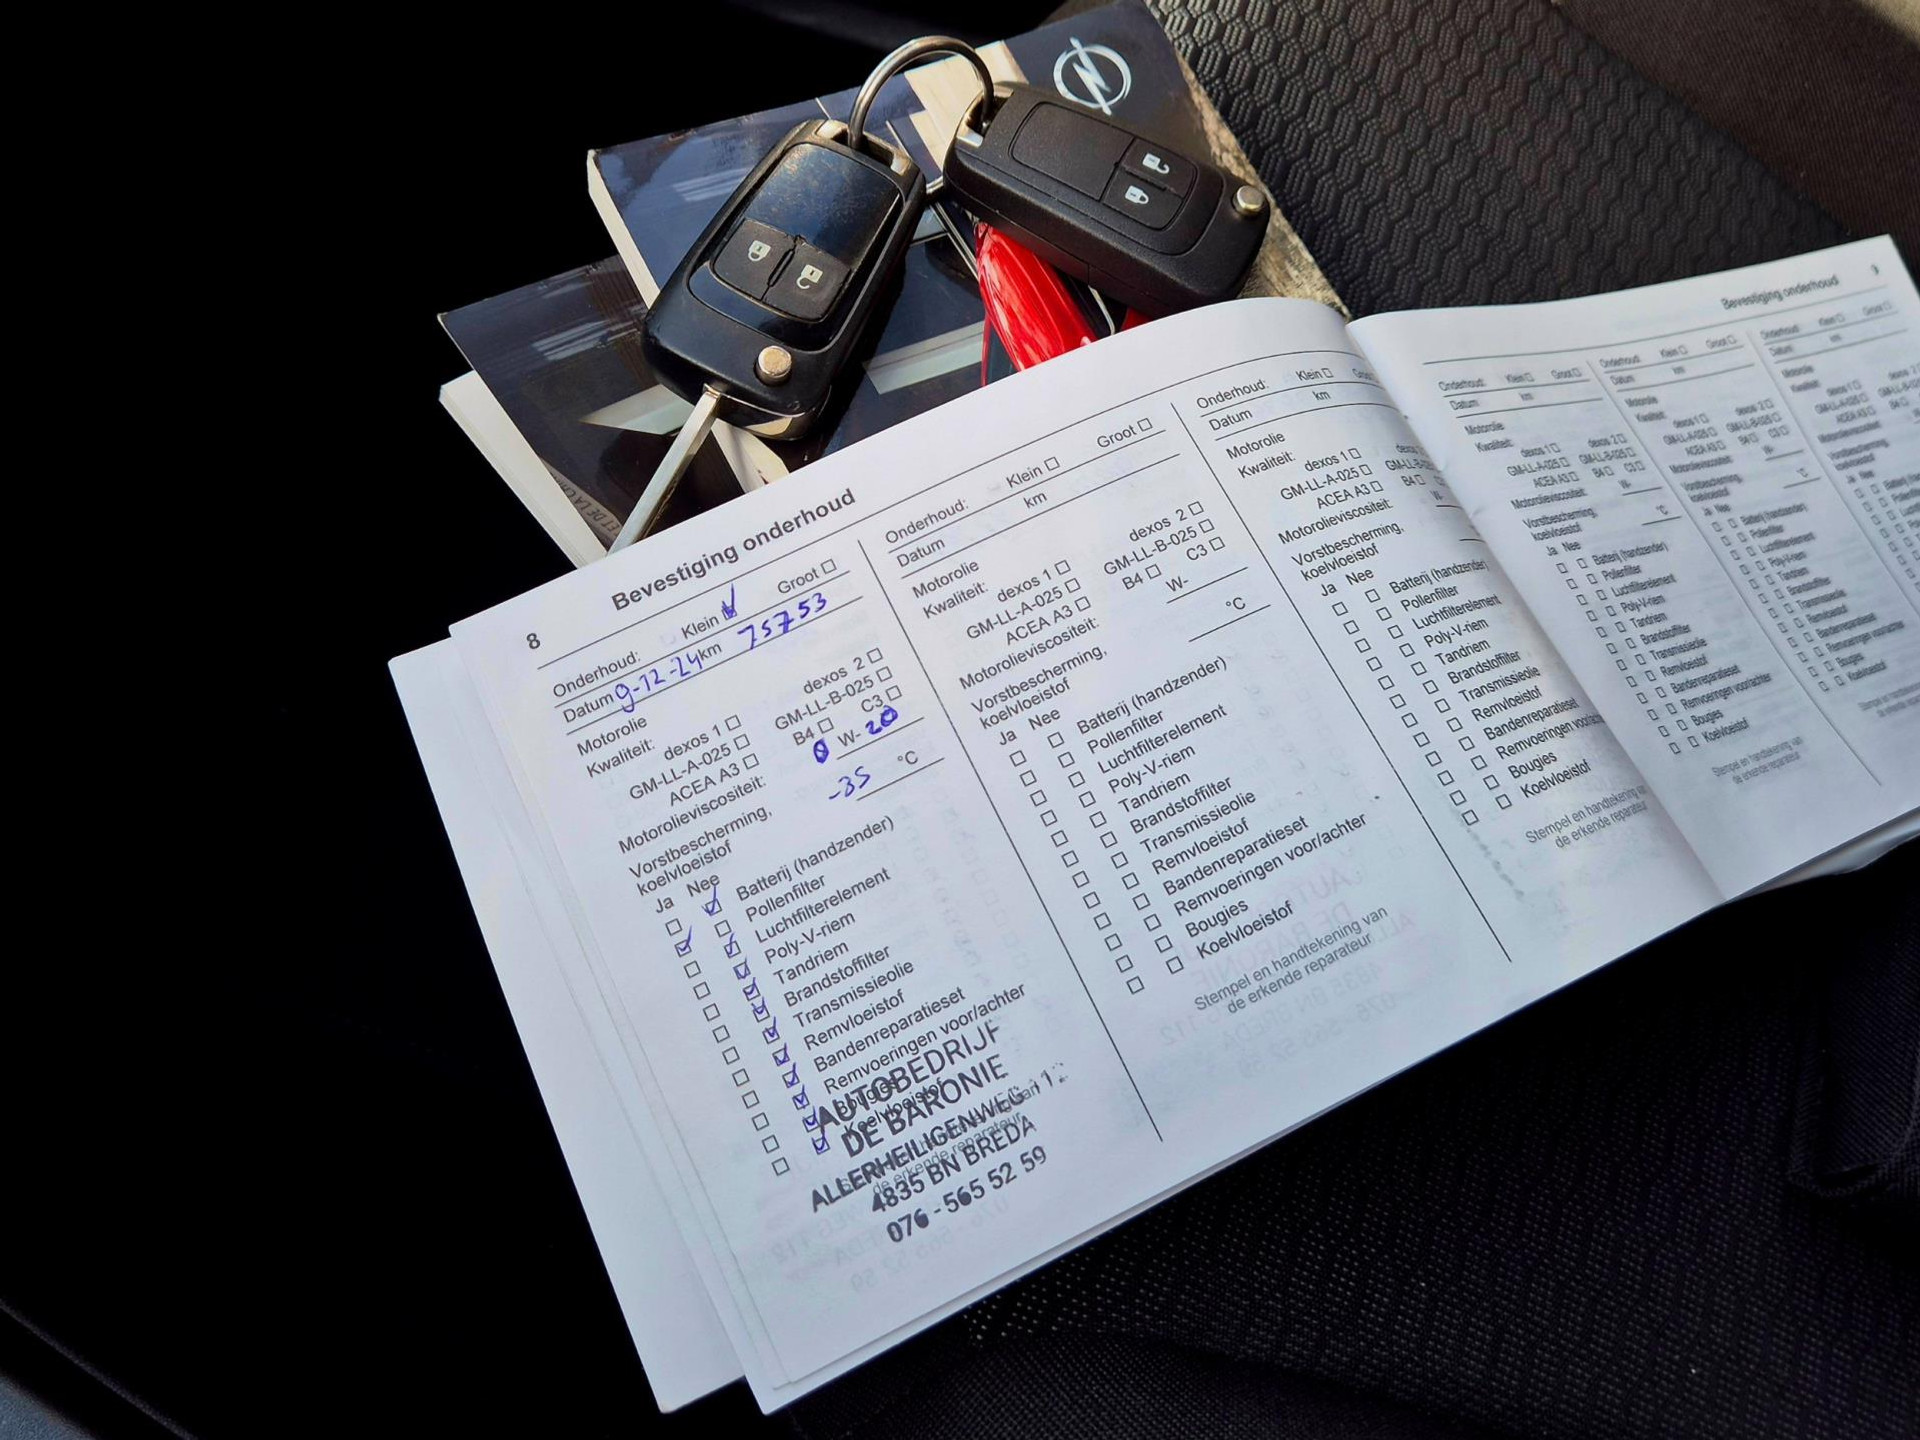 8
Bevestiging onderhoud
Onderhoud: Klein Groot
Datum 9-12-24 km 75753
Motorolie
Kwaliteit: dexos 1 dexos 2
GM-LL-A-025 GM-LL-B-025
ACEA A3 B4 C3
Motorolieviscositeit: 0 W- 20
Vorstbescherming,
koelvloeistof -35 °C
Ja Nee
Batterij (handzender)
Pollenfilter
Luchtfilterelement
Poly-V-riem
Tandriem
Brandstoffilter
Transmissieolie
Remvloeistof
Bandenreparatieset
Remvoeringen voor/achter
Bougies
Koelvloeistof
AUTOBEDRIJF
DE BARONIE
ALLERHEILIGENWEG 112
4835 BN BREDA
076 - 565 52 59
Onderhoud: Klein Groot
Datum km
Motorolie
Kwaliteit: dexos 1 dexos 2
GM-LL-A-025 GM-LL-B-025
ACEA A3 B4 C3
Motorolieviscositeit: W-
Vorstbescherming,
koelvloeistof °C
Ja Nee
Batterij (handzender)
Pollenfilter
Luchtfilterelement
Poly-V-riem
Tandriem
Brandstoffilter
Transmissieolie
Remvloeistof
Bandenreparatieset
Remvoeringen voor/achter
Bougies
Koelvloeistof
Stempel en handtekening van
de erkende reparateur
Onderhoud: Klein
Datum km
Motorolie
Kwaliteit: dexos 1
GM-LL-A-025
ACEA A3 B4
Motorolieviscositeit:
Vorstbescherming,
koelvloeistof
Ja Nee
Batterij (handzender)
Pollenfilter
Luchtfilterelement
Poly-V-riem
Tandriem
Brandstoffilter
Transmissieolie
Remvloeistof
Bandenreparatieset
Remvoeringen
Bougies
Koelvloeistof
Stempel en handtekening
de erkende reparateur
Bevestiging onderhoud
9
Onderhoud: Klein Groot
Datum km
Motorolie
Kwaliteit: dexos 1 dexos 2
GM-LL-A-025 GM-LL-B-025
ACEA A3 B4 C3
Motorolieviscositeit: W-
Vorstbescherming,
koelvloeistof °C
Ja Nee
Batterij (handzender)
Pollenfilter
Luchtfilterelement
Poly-V-riem
Tandriem
Brandstoffilter
Transmissieolie
Remvloeistof
Bandenreparatieset
Remvoeringen voor/achter
Bougies
Koelvloeistof
Stempel en handtekening van
de erkende reparateur
Onderhoud: Klein Groot
Datum km
Motorolie
Kwaliteit: dexos 1 dexos 2
GM-LL-A-025 GM-LL-B-025
ACEA A3 B4 C3
Motorolieviscositeit: W-
Vorstbescherming,
koelvloeistof °C
Ja Nee
Batterij (handzender)
Pollenfilter
Luchtfilterelement
Poly-V-riem
Tandriem
Brandstoffilter
Transmissieolie
Remvloeistof
Bandenreparatieset
Remvoeringen voor/achter
Bougies
Koelvloeistof
Onderhoud: Klein Groot
Datum km
Motorolie
Kwaliteit: dexos 1
GM-LL-A-025
ACEA A3